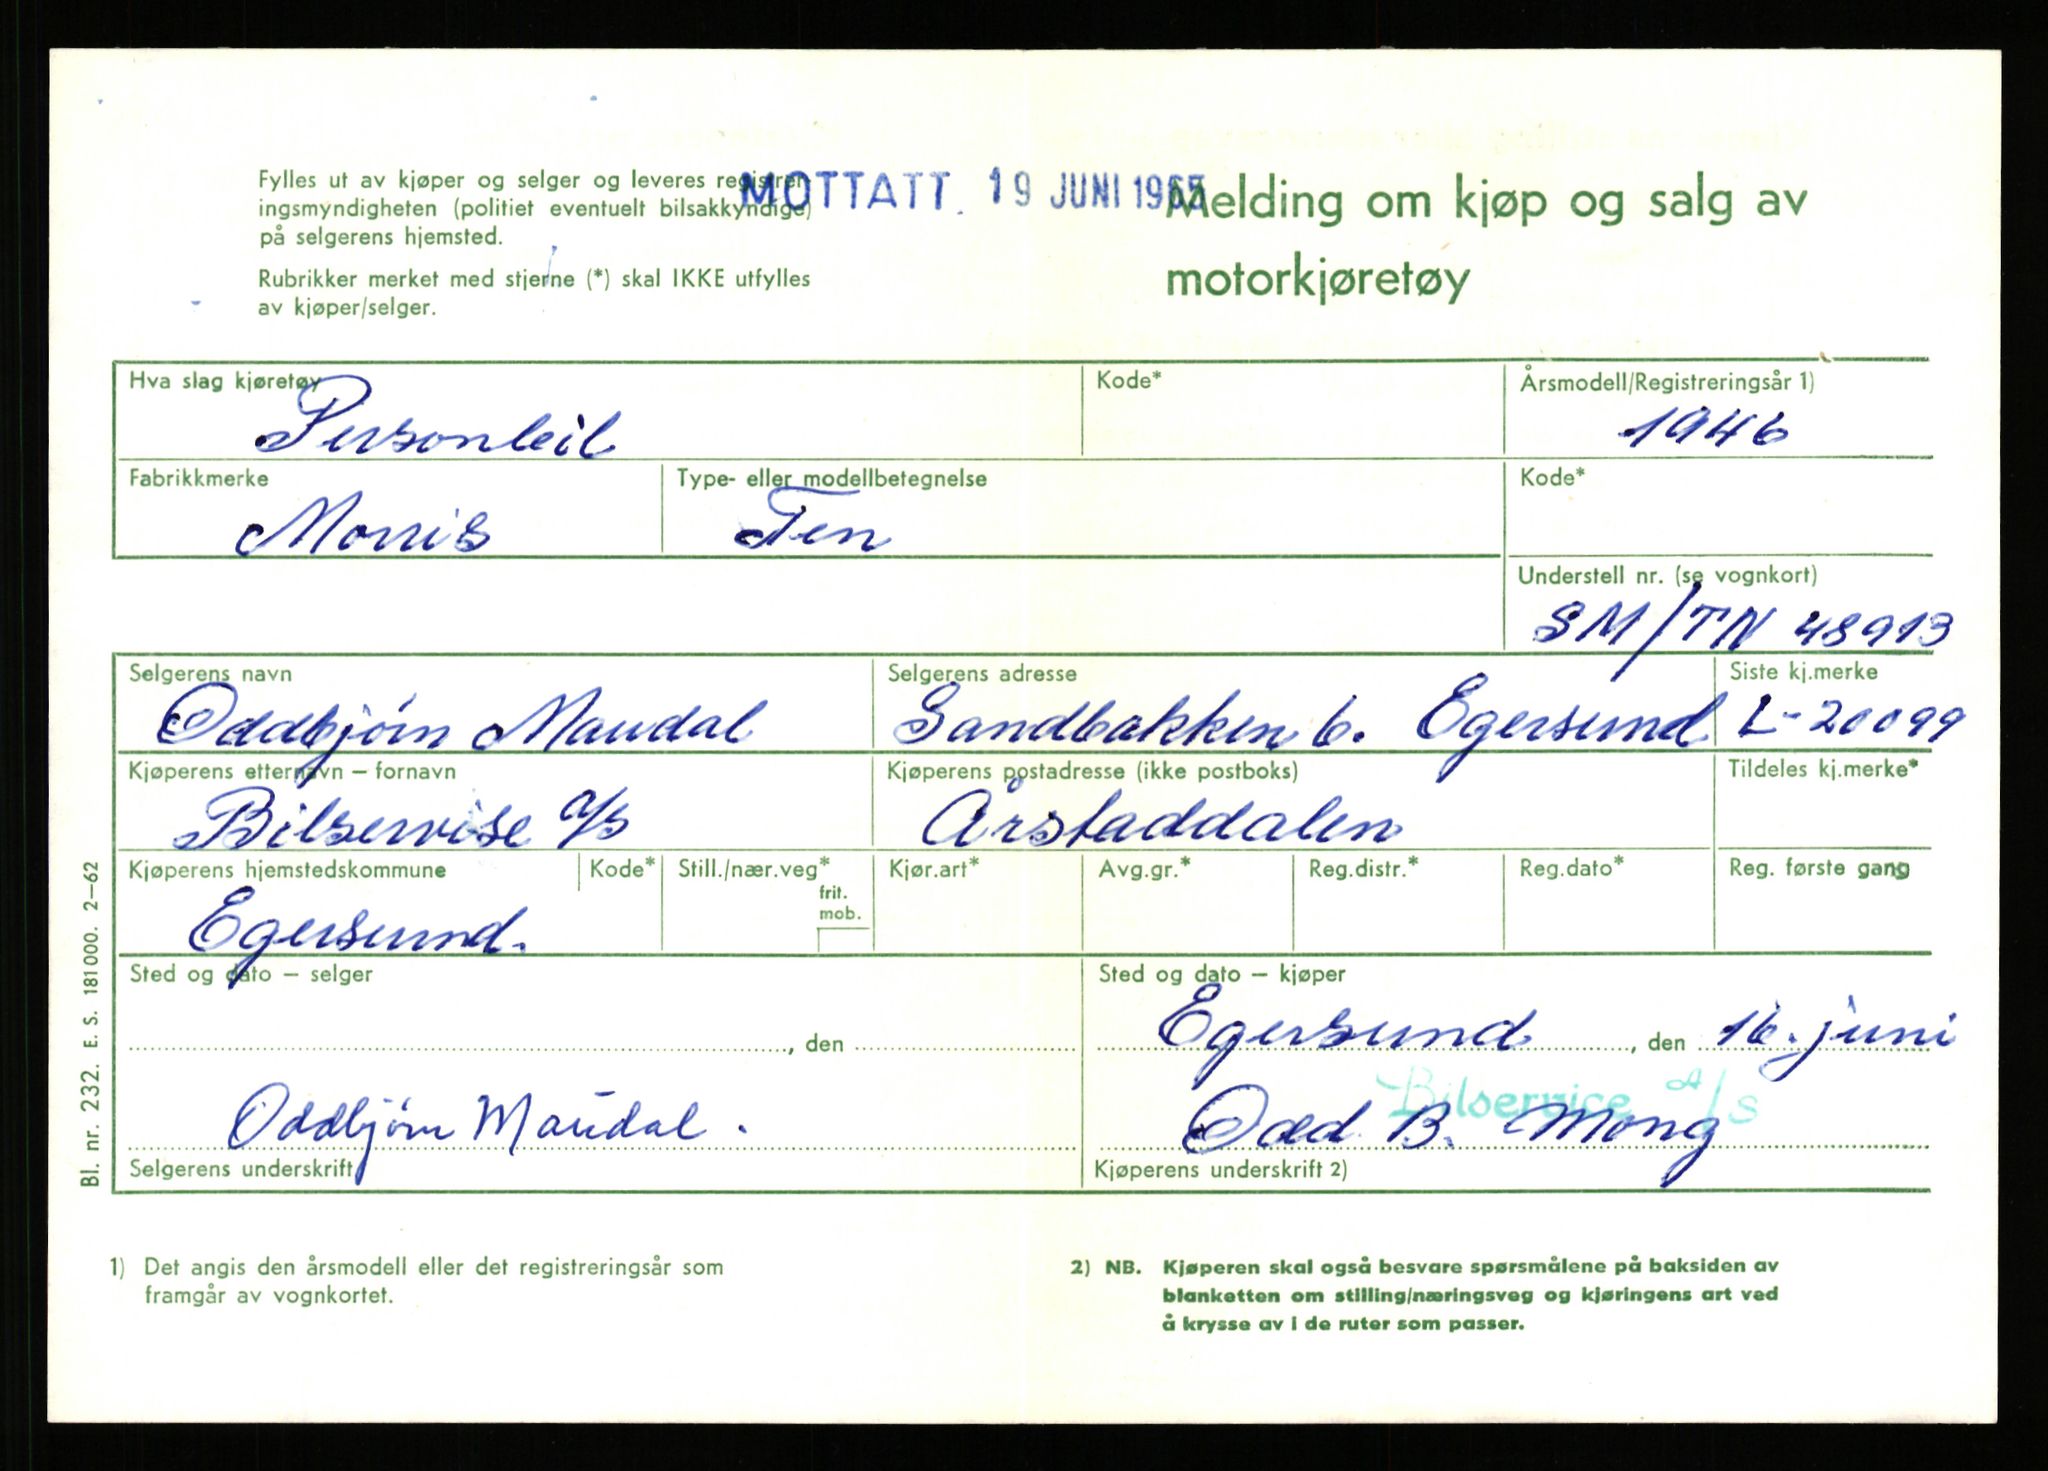 Fylles ut av kjøper og selger og leveres registrer-
ingsmyndigheten (politiet eventuelt bilsakkyndige)
på selgerens hjemsted.
Rubrikker merket med stjerne (*) skal IKKE utfylles
av kjøper/selger.
MOTTATT. 19 JUNI 1965
Melding om kjøp og salg av
motorkjøretøy
Hva slag kjøretøy
Personbil
Kode*
Årsmodell/Registreringsår 1)
1946
Fabrikkmerke
Morris
Type- eller modellbetegnelse
Ten
Kode*
Understell nr. (se vognkort)
SM/TN 48913
Selgerens navn
Oddbjørn Maudal
Selgerens adresse
Sandbakken 6. Egersund
Siste kj.merke
L-20099
Kjøperens etternavn – fornavn
Bilservise a/s
Kjøperens postadresse (ikke postboks)
Årstaddalen
Tildeles kj.merke*
Kjøperens hjemstedskommune
Egersund.
Kode*
Still./nær.veg*
frit.
mob.
Kjør.art*
Avg.gr.*
Reg.distr.*
Reg.dato*
Reg. første gang
Sted og dato – selger
, den
Oddbjørn Maudal.
Selgerens underskrift
Sted og dato – kjøper
Egersund, den 16. juni
Bilservice A/S
Odd B. Mong
Kjøperens underskrift 2)
Bl. nr. 232. E. S. 181 000. 2–62
1) Det angis den årsmodell eller det registreringsår som
framgår av vognkortet.
2) NB. Kjøperen skal også besvare spørsmålene på baksiden av
blanketten om stilling/næringsveg og kjøringens art ved
å krysse av i de ruter som passer.